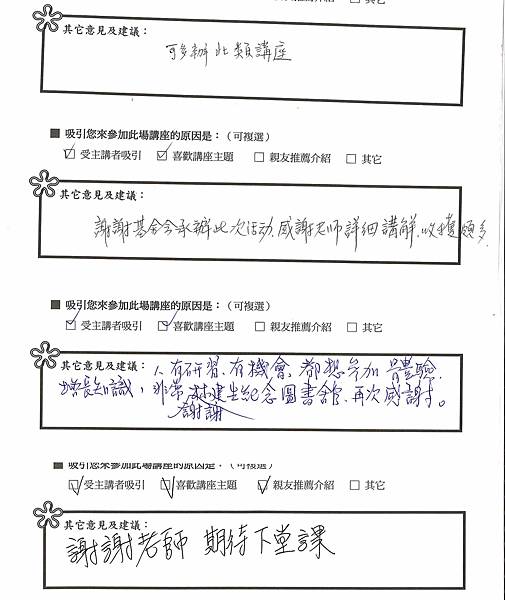 其它意見及建議：
可多辦此類講座
■ 吸引您來參加此場講座的原因是：(可複選)
☑ 受主講者吸引 ☑ 喜歡講座主題 □ 親友推薦介紹 □ 其它
其它意見及建議：
謝謝基金會承辦此次活動,感謝老師詳細講解,收穫頗多.
■ 吸引您來參加此場講座的原因是：(可複選)
☑ 受主講者吸引 ☑ 喜歡講座主題 □ 親友推薦介紹 □ 其它
其它意見及建議：
人有研習、有機會、都想參加體驗.
增長知識，非常 紀念圖書館、再次感謝。
謝謝
■ 吸引您來參加此場講座的原因是：(可複選)
☑ 受主講者吸引 ☑ 喜歡講座主題 ☑ 親友推薦介紹 □ 其它
其它意見及建議：
謝謝老師 期待下堂課